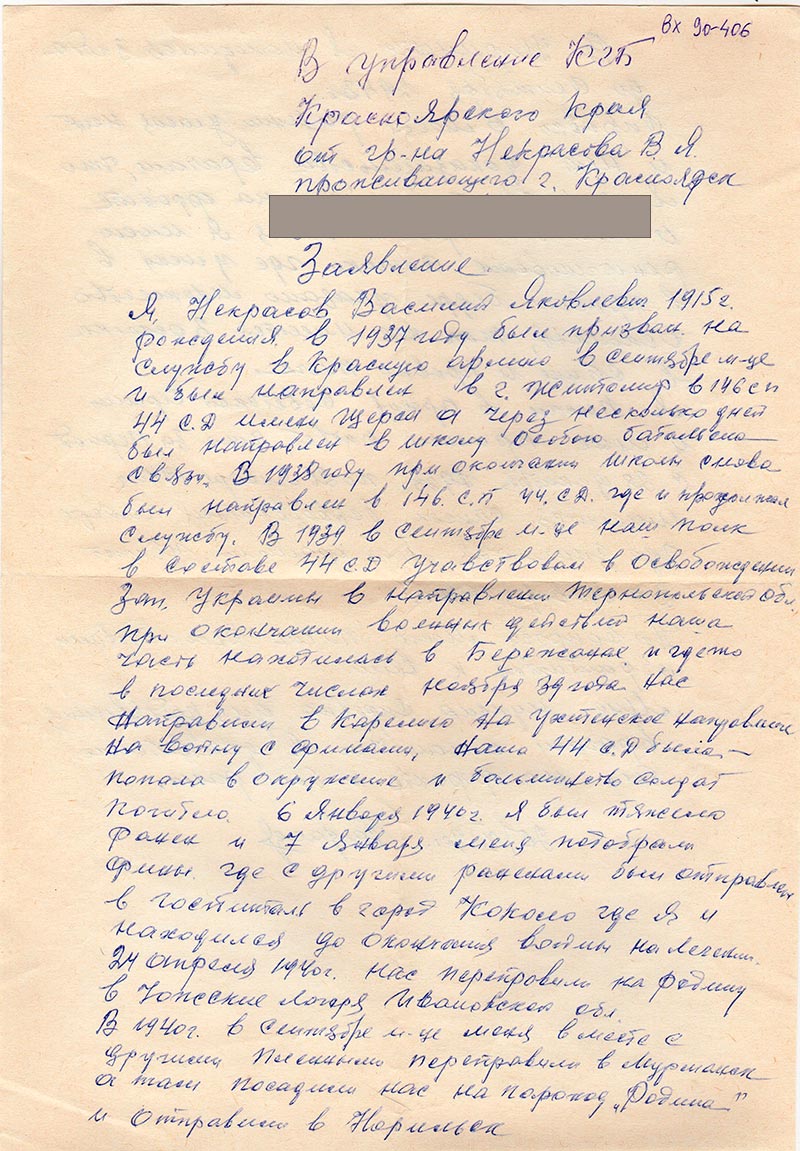 Вх 90-406
В управление КГБ
Красноярского края
от гр-на Некрасова В. Я.
проживающего г. Красноярск
Заявление
Я, Некрасов Василий Яковлевич 1915 г.
рождения. в 1937 году был призван на
службу в Красную армию в сентябре м-це
и был направлен в г. Житомир в 146 сп
44 с.д имени Щорса а через несколько дней
был направлен в школу особого батальона
связи. В 1938 году при окончании школы снова
был направлен в 146. с.п 44. с.д. где и продолжал
службу. В 1939 в сентябре м-це наш полк
в составе 44 с.д учавствовал в освобождении
Зап. Украины в направлении Тернопольской обл.
при окончании военных действий наша
часть находилась в Бережанах и где то
в последних числах ноября 39 года нас
направили в Карелию на Ухтенское направление
на войну с финами, наша 44 с.д была
попала в окружение и большинство солдат
погибло. 6 января 1940 г. я был тяжело
ранен и 7 января меня подобрали
фины. где с другими ранеными был отправлен
в госпиталь в город Кокколо где я и
находился до окончания войны на лечении.
24 апреля 1940 г. нас переправили на Родину
в Южские лагеря Ивановской обл.
В 1940 г. в сентябре м-це меня вместе с
другими пленными переправили в Мурманск
а там посадили нас на пароход „Родина"
и отправили в Норильск